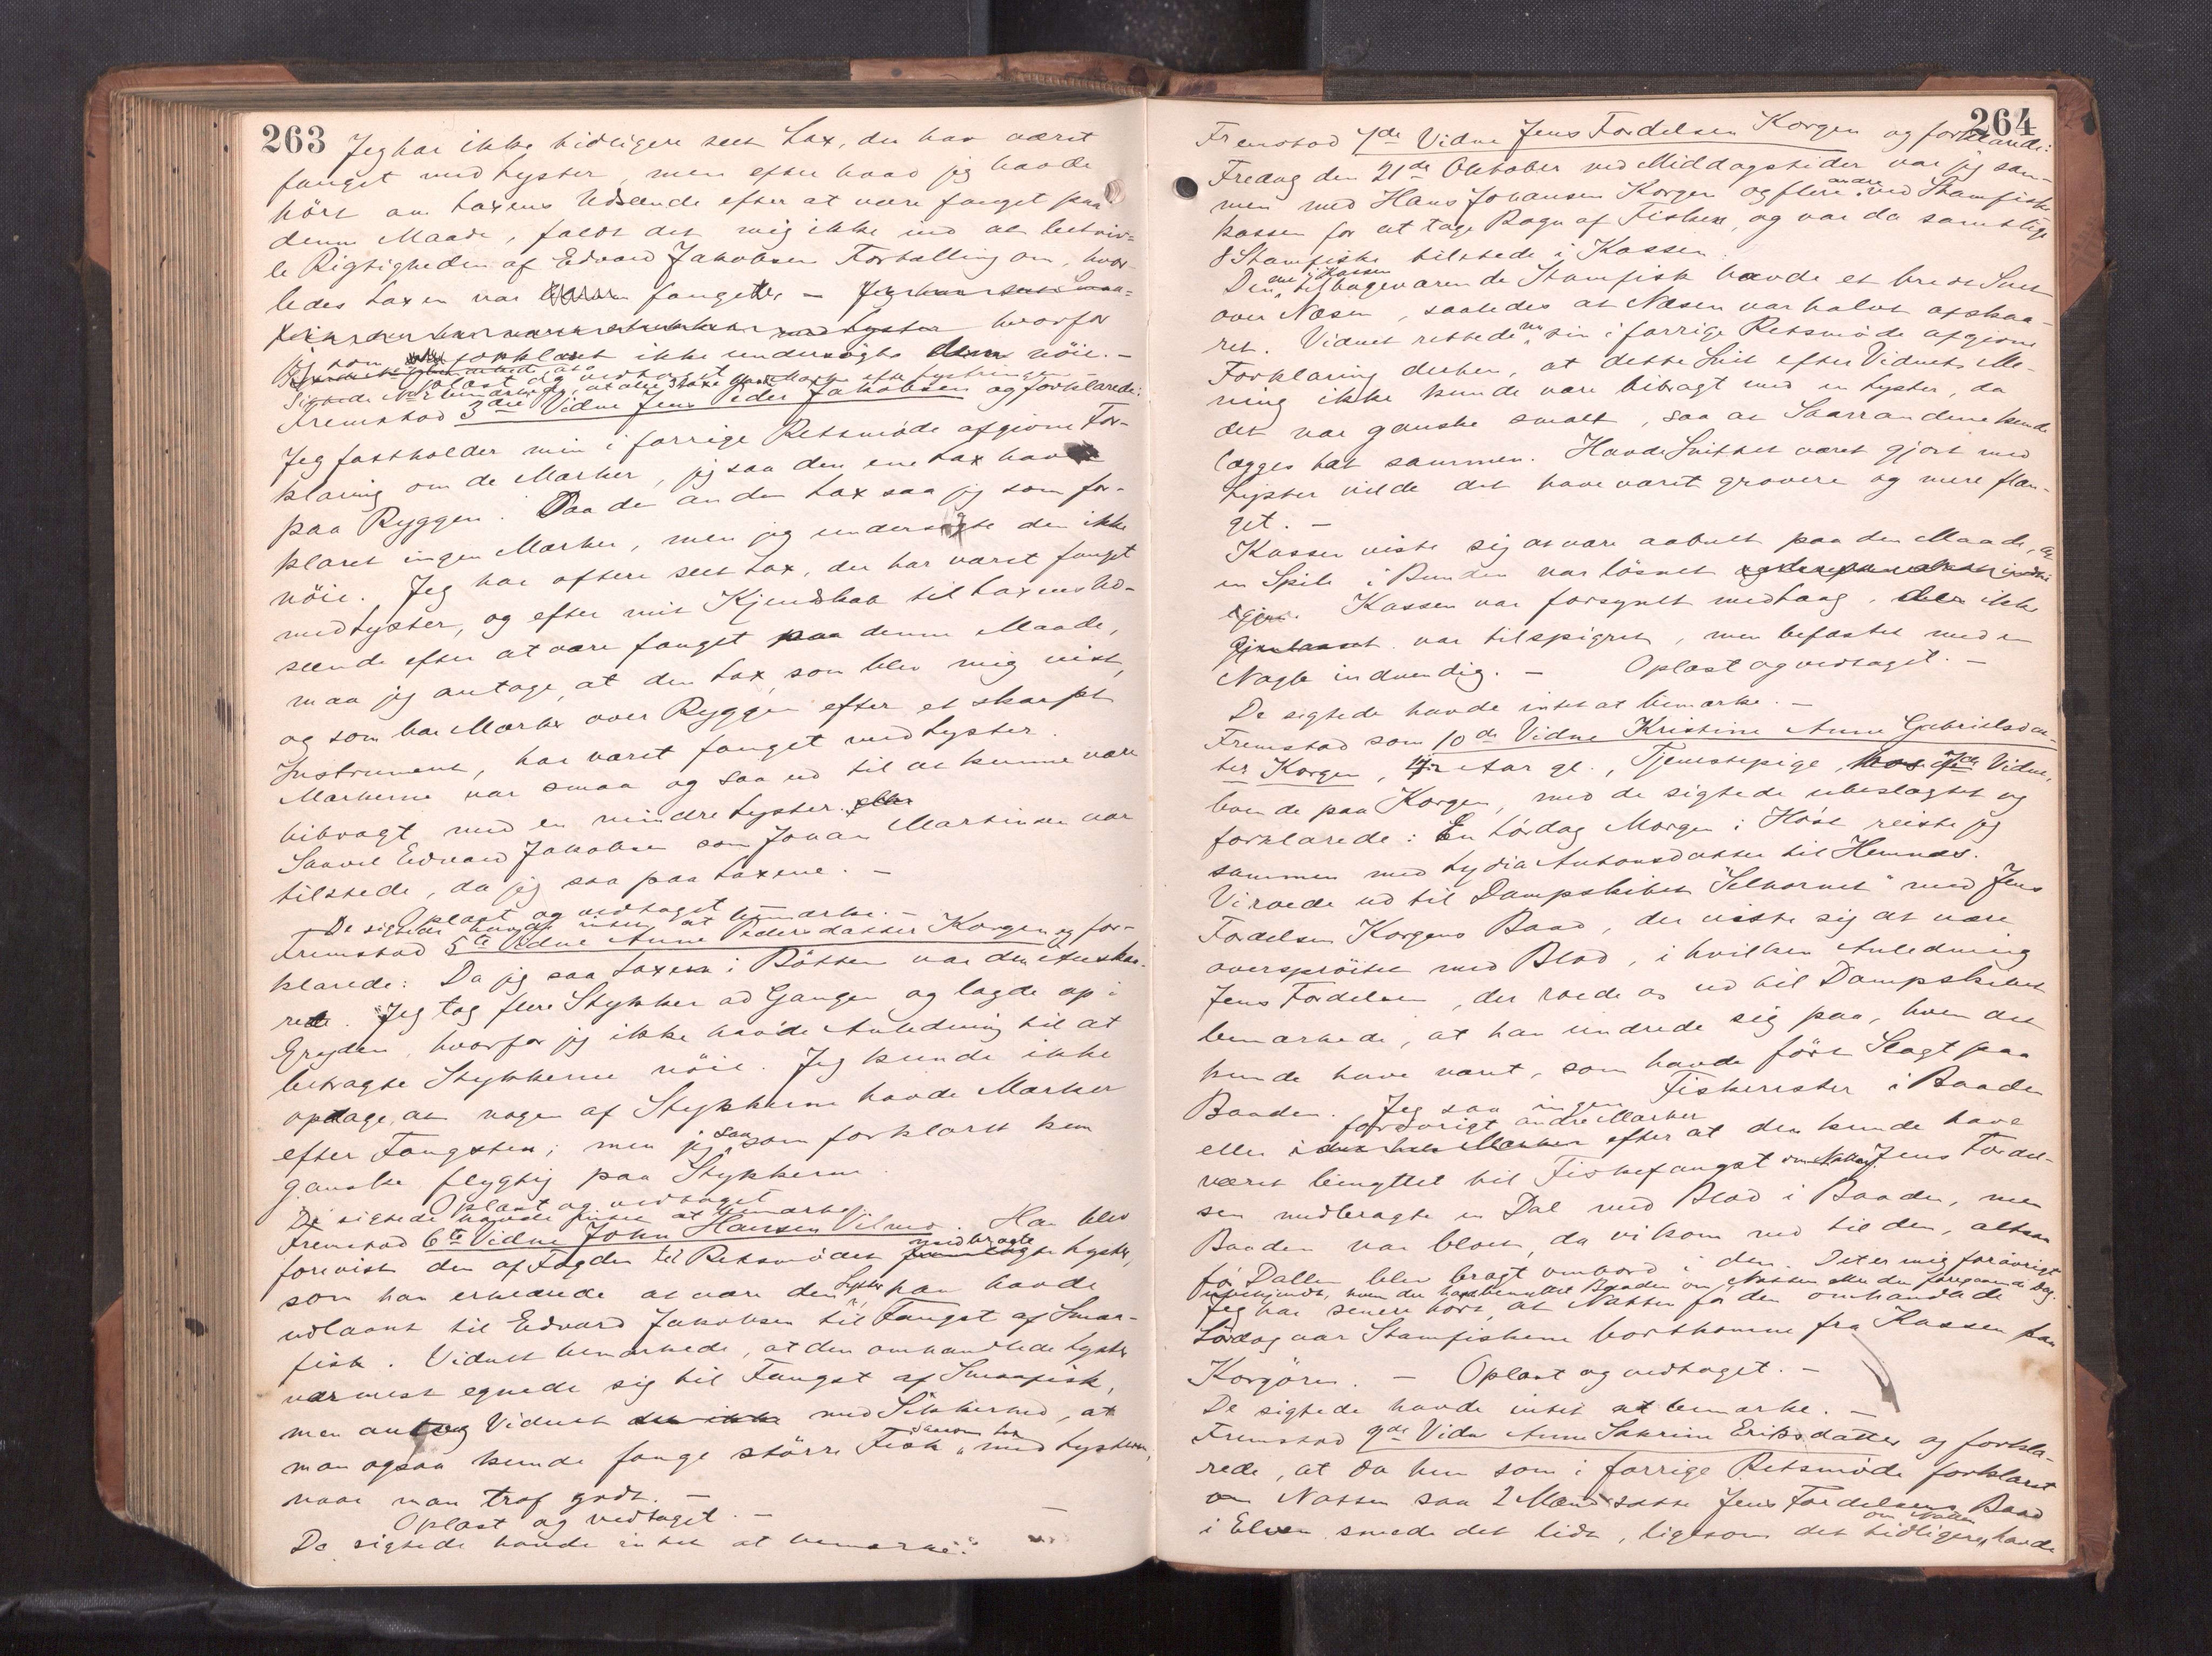 263
Jeg har ikke tidligere seet Lax, der har været
fanget med Lyster, men efter hvad jeg havde
hört om Laxens Udseende efter at være fanget paa
denne Maade, faldt det mig ikke ind at betviv-
le Rigtigheden af Edvard Jakobsens Fortælling om, hvor-
ledes Laxen var fanget. – Jeg har seet Smaa-
fisk, der har været med Lyster hvorfor
jeg som forklaret ikke undersögte dem nöie. –
Oplæst og vedtaget
Fremstod 3die Vidne Jens Peder Jakobsen og forklarede:
Jeg fastholder min i forrige Retsmöde afgivne For-
klaring om de Mærker, jeg saa den ene Lax havde
paa Ryggen. Paa den anden Lax saa jeg som for-
klaret ingen Mærker, men jeg undersögte den ikke
nöie. Jeg har oftere seet Lax, der har været fanget
med Lyster, og efter mit Kjendskab til Laxens Ud-
seende efter at være fanget paa denne Maade,
maa jeg antage, at den Lax, som blev mig vist,
og som bar Mærke over Ryggen efter et skarpt
Instrument, har været fanget med Lyster.
Mærkerne var smaa og saa ud til at kunne være
bibragt med en mindre Lyster.
Saavel Edvard Jakobsen som Johan Martinsen var
tilstede, da jeg saa paa Laxene. –
Oplæst og vedtaget
De sigtede havde intet at bemærke. –
Fremstod 5te Vidne Anne Pedersdatter Korgen og for-
klarede: Da jeg saa Laxen i Bötten var den itu skaa-
ret. Jeg tog flere Stykker ad Gangen og lagde op i
Gryden, hvorfor jeg ikke havde Anledning til at
betragte Stykkerne nöie. Jeg kunde ikke
opdage, at nogen af Stykkerne havde Mærker
efter Fangsten; men jeg saa som forklaret kun
ganske flygtig paa Stykkerne.
Oplæst og vedtaget
De sigtede havde intet at bemærke
Fremstod 6te Vidne John Hansen Vilmo. Han blev
forevist den af Fogden til Retsmödet medbragte Lyster,
som han erklærede at være den Lyster, han havde
udlaant til Edvard Jakobsen til Fangst af Smaa-
fisk. Vidnet bemærkede, at den omhandlede Lyster
var mest egnede sig til Fangst af Smaafisk,
men antog Vidnet med Sikkerhed, at
man ogsaa kunde fange större Fisk saasom Lax med Lysteren,
naar man traf godt. –
Oplæst og vedtaget. –
De sigtede havde intet at bemærke. –
264
Fremstod 7de Vidne Jens Fordelsen Korgen og forklarede:
Fredag den 21de Oktober ved Middagstider var jeg sam-
men med Hans Johansen Korgen og flere andre ved Stamfiske-
kassen for at tage Rogn af Fisken, og var da samtlige
8 Stamfiske tilstede i Kassen.
Den ene i Kassen tilbageværende Stamfisk havde et bredt Snit
over Næsen, saaledes at Næsen var halvt afskaa-
ret. Vidnet rettede nu sin i forrige Retsmöde afgivne
Forklaring derhen, at dette Snit efter Vidnets Me-
ning ikke kunde være bibragt med en Lyster, da
det var ganske smalt, saa at Saarrandene kunde
lægges tæt sammen. Havde Snittet været gjort med
Lyster vilde det have været grovere og mere flæn-
get. –
Kassen viste sig at være aabnet paa den Maade, at
en Spile i Bunden var lösnet
Kassen var forsynet med Laag, der ikke
var tilspigret, men befæstet med en
Nagle indvendig. – Oplæst og vedtaget. –
De sigtede havde intet at bemærke. –
Fremstod som 10de Vidne Kristine Anne Gabrielsdat-
ter Korgen, Aar gl., Tjenestepige, hos 7de Vidne,
boende paa Korgen, med de sigtede ubeslægtet og
forklarede: En Lördag Morgen i Höst reiste jeg
sammen med Lydia Antonsdatter til Hemnæs.
Vi roede ud til Dampskibet "Selhornet" med Jens
Fordelsen Korgens Baad, der viste sig at være
overspröitet med Blod, i hvilken Anledning
Jens Fordelsen, der roede os ud til Dampskibet
bemærkede, at han undrede sig paa, hvem det
kunde have været, som havde fört Slagt paa
Baaden. Jeg saa ingen Fiskerester i Baaden
eller forövrigt andre Mærker efter at den kunde have
været benyttet til Fiskefangst om Natten. Jens Fordel-
sen medbragte en Dal med Blod i Baaden, men
Baaden var blodet, da vi kom ned til den, altsaa
för Dallen blev bragt ombord i den. Det er mig forövrigt
ubekjendt, hvem der har benyttet Baaden om Natten eller den foregaaende Dag.
Jeg har senere hört, at Natten för den omhandlede
Lördag var Stamfiskene bortkomne fra Kassen paa
Korgören. – Oplæst og vedtaget. –
De sigtede havde intet at bemærke. –
Fremstod 9de Vidne Anne Sakrine Eriksdatter og forkla-
rede, at da hun som i forrige Retsmöde forklaret
om Natten saa 2 Mænd sætte Jens Fordelsens Baad
i Elven snede det lidt, ligesom det tidligere om Natten havde